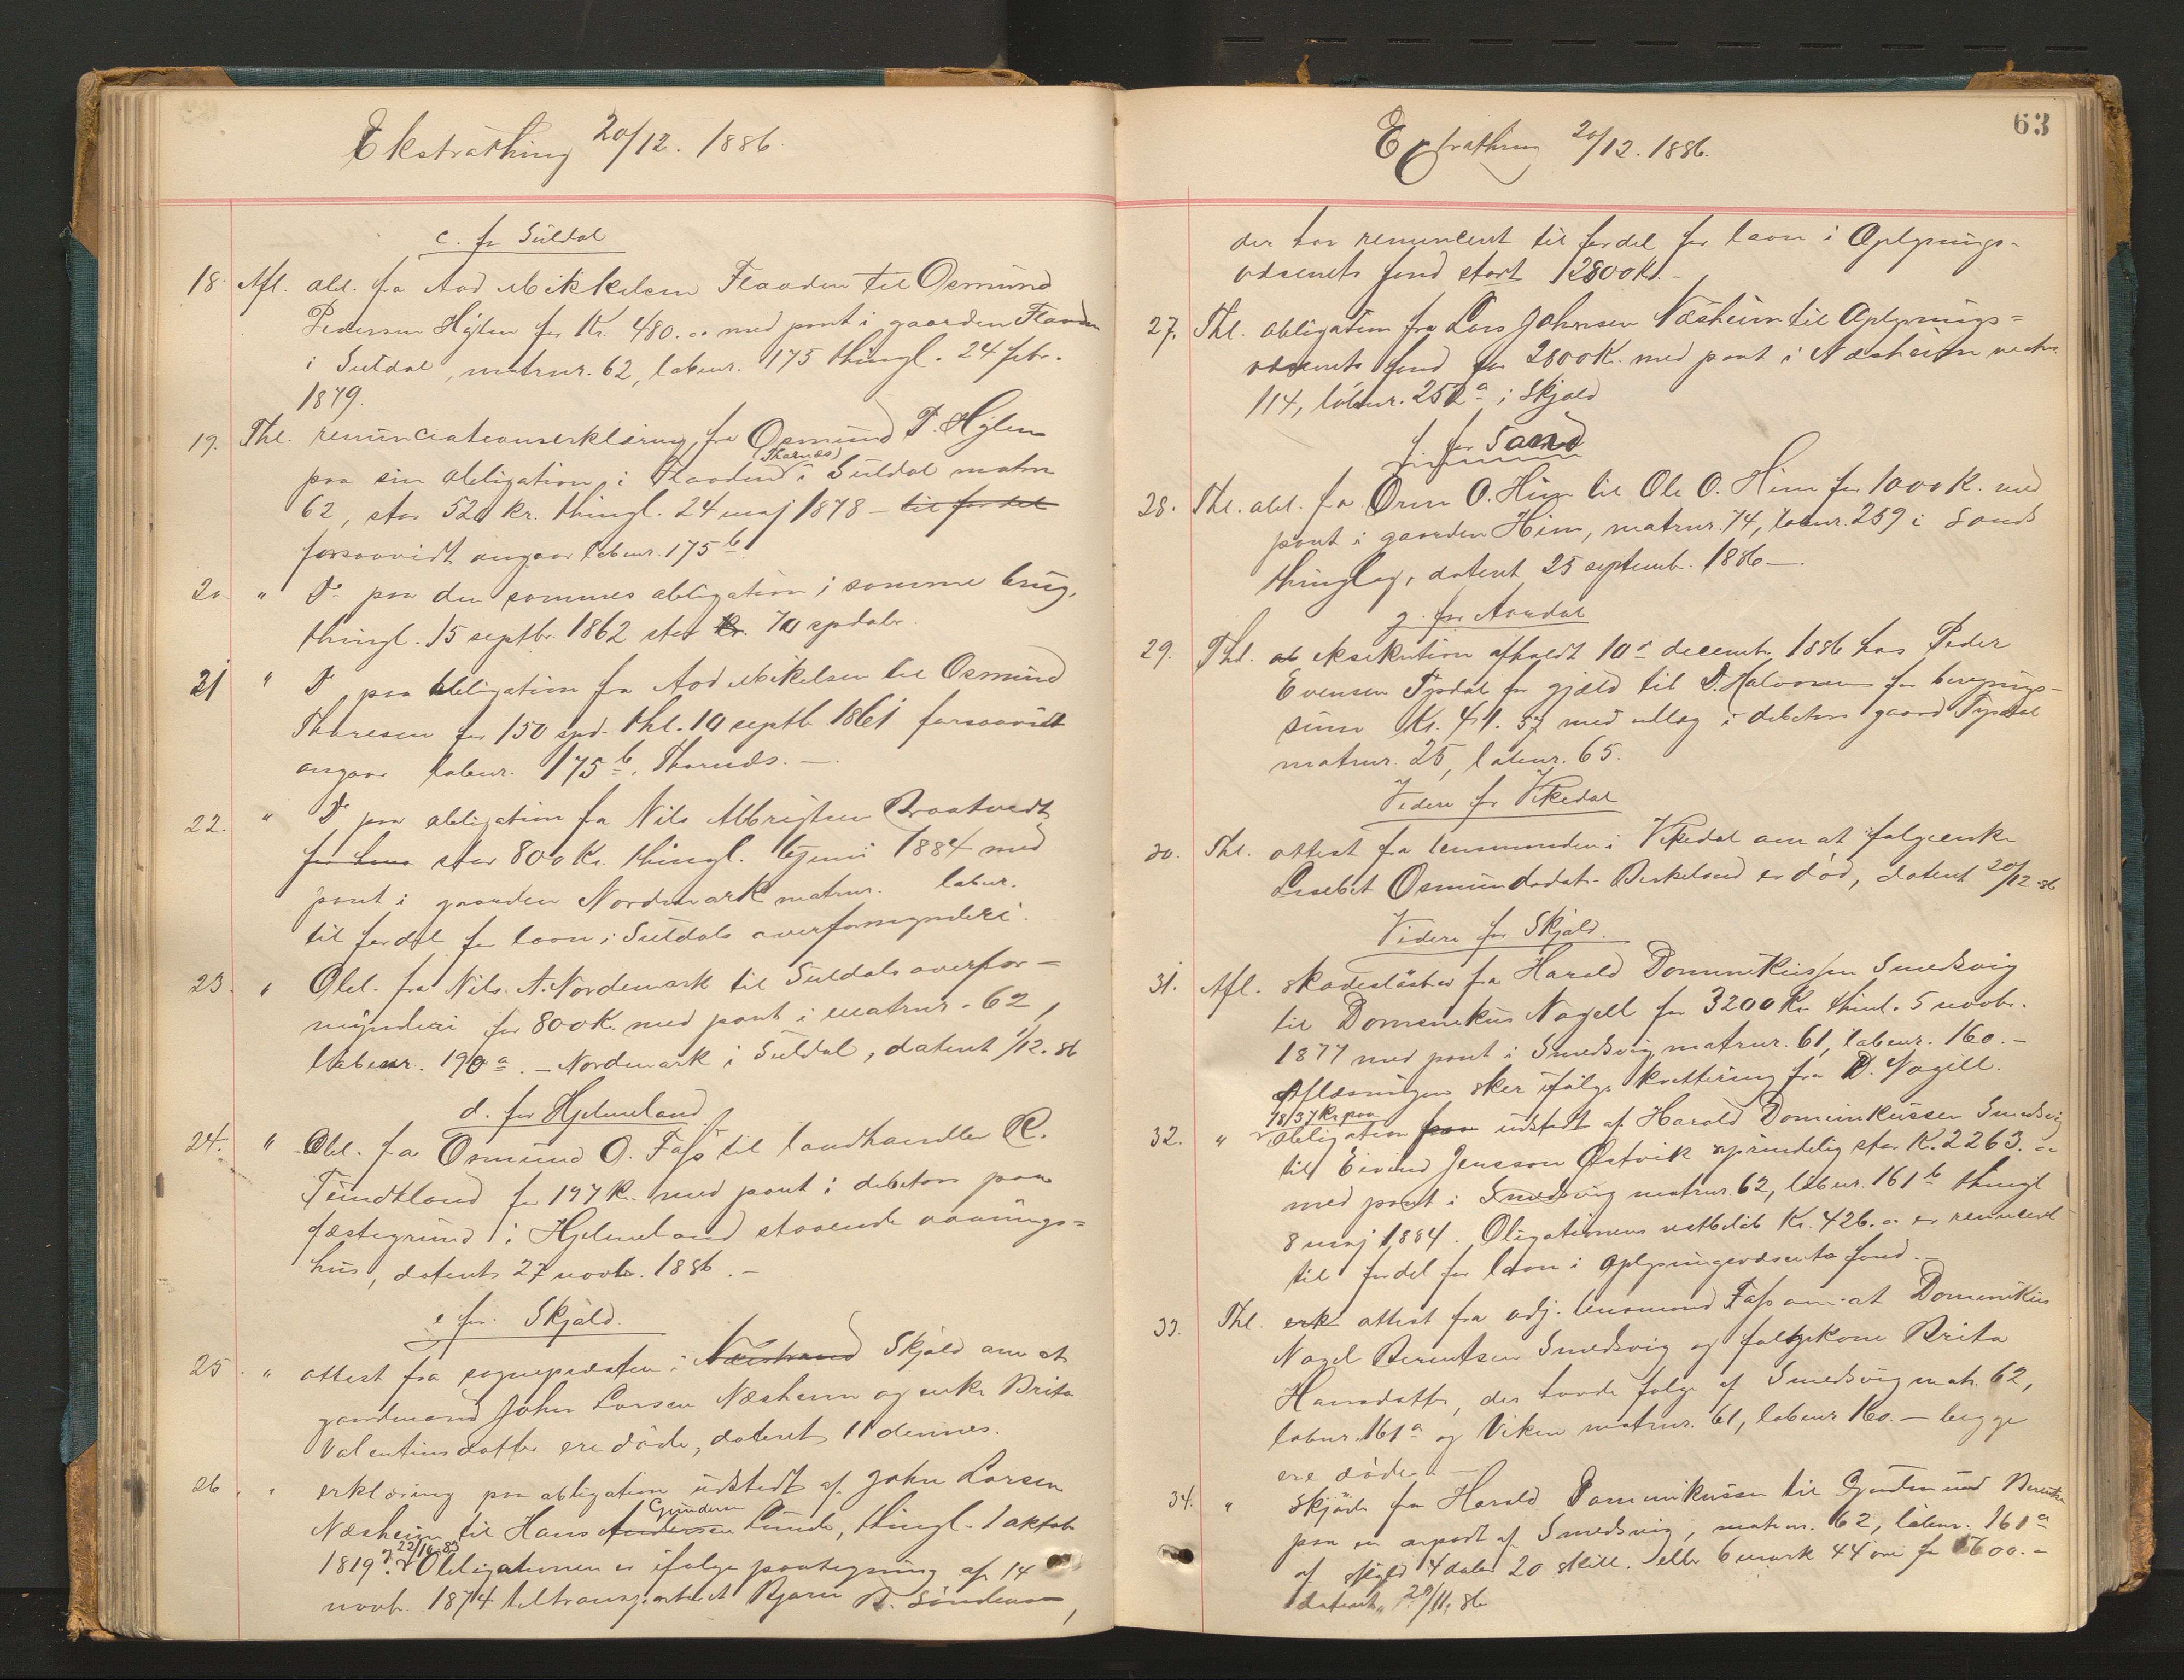 Ekstrathing 20/12. 1886.
c. for Suldal
18. Afl. obl. fra Aad Mikkelsen Flaaden til Osmund
Pedersen Hÿlen for Kr. 480.00 med pant i gaarden Flaaden
i Suldal, matrnr. 62, løbenr. 175 thingl. 24 febr.
1879.
19. Thl. renunciationserklæring fra Osmund P. Hylen
paa sin obligation i Flaaden (Tharnæs) i Suldal matrn
62, stor 520 kr. thingl. 24 maj 1878 – til fordel
forsaavidt angaar løbenr. 175 b.
20 " Do paa den sammes obligation i samme brug,
thingl. 15 septbr. 1862 stor Kr. 70 spdalr.
21 " Do paa obligation fra Aad Mikelsen til Osmund
Tharesen for 150 spd. thl. 10 septb. 1861 forsaavidt
angaar løbenr. 175 b, Tharnæs. –
22. " Do paa obligation fra Nils Albrigtsen Braatvedt,
for laan stor 800 Kr. thingl. juni 1884 med
pant i gaarden Nordmark matrnr. løbnr.
til fordel for laan i Suldals overformynderi.
23. " Obl. fra Nils A. Nordmark til Suldals overfor-
mynderi for 800 K. med pant i matrnr. 62,
løbenr. 190 a. – Nordmark i Suldal, datert 1/12. 86
d. for Hjelmeland
24. " Obl. fra Osmund O. Fass til landhandler R.
Tundtland for 197 K. med pant i debitors paa
fæstegrund i Hjelmeland staaende vaanings=
hus, datert 27 novbr. 1886. –
e for Skjold.
25 " attest fra sognepræsten i Nærstrand Skjold om at
gaardmand John Larsen Næsheim og enke Brita
Valentinsdatter ere døde, dateret 11 dennes.
26 " erklæring paa obligation udstedt af John Larsen
Næsheim til Hans Andersen Gundersen Lunde, thingl. 1 oktob
1819. Obligationen er ifølge paategning af 14
novb. 1874 tiltransporteret Bjarn B. Sandenes,
63
Extrathing 20/12. 1886.
der har renunceret til fordel for laan i Oplysnings-
væsenets fond stort 12800 Kr. –
27. Thl. obligation fra Lars Johnsen Næsheim til Oplysnings=
væsenets fond for 2800 K. med pant i Næsheim matrn
114, løbenr. 252 a i Skjold
f. for Sand
28. Thl. obl. fra Orm O. Hiim til Ole O. Hiim for 1000 K. med
pant i gaarden Hiim, matrnr. 74, løbnr. 259 i Sands
thinglag, datert 25 septemb. 1886 –.
g. for Aardal
29. Thl. ob eksekution afholdt 10de decemb. 1886 hos Peder
Evensen Tysdal for gjæld til D. Halvorsen for beregnings-
sum Kr. 41. 57 med udlæg i debitors gaard Tysdal
matrnr. 25, løbenr. 65.
Videre for Vikedal
30. Thl. attest fra lensmanden i Vikedal om at folgeenke
Lisebet Osmundsdat. Birkeland er død, datert 20/12 86
Videre for Skjold.
31. Afl. skadesløsbrev fra Harald Domminikussen Smedsvig
til Domenikus Nagell for 3200 Kr thinl. 5 novbr.
1877 med pant i Smedsvig matrnr. 61, løbenr. 160. –
Aflæsningen sker ifølge kvittering fra D. Nagell.
1837 Kr. paa
32. " Obligation fra udstedt af Harald Dominikussen Smedsvig
til Eivind Jensson Østvik oprindelig stor K. 2263.00
med pant i Smedsvig matrnr. 62, løbnr. 161 b thingl
8 maj 1884. Obligationens restbeløb Kr. 426.00 er renunceret
til fordel for laan i Oplysningsvæsenets fond. –
33. Thl. erk attest fra adj. lensmand Fass om at Dominikus
Nagel Berentsen Smedsvig og folgekone Brita
Hansdatter, der havde folge af Smedsvig matr. 62,
løbnr. 161 a og Viken matrnr. 61, løbenr 160. – begge
ere døde. –
34. " Skjøde fra Harald Domminikussen til Gudmund Berentsen
paa en anpart af Smedsvig, matrnr. 62, løbnr. 161 a
af skyld 4 daler 20 skill. eller 6 mark 44 øre for 600.00
datert 29/11. 86